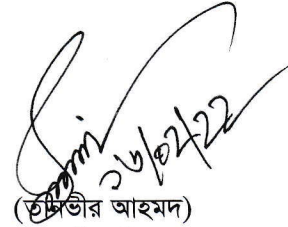 ১৬/০২/২২
(তানভীর আহমদ)